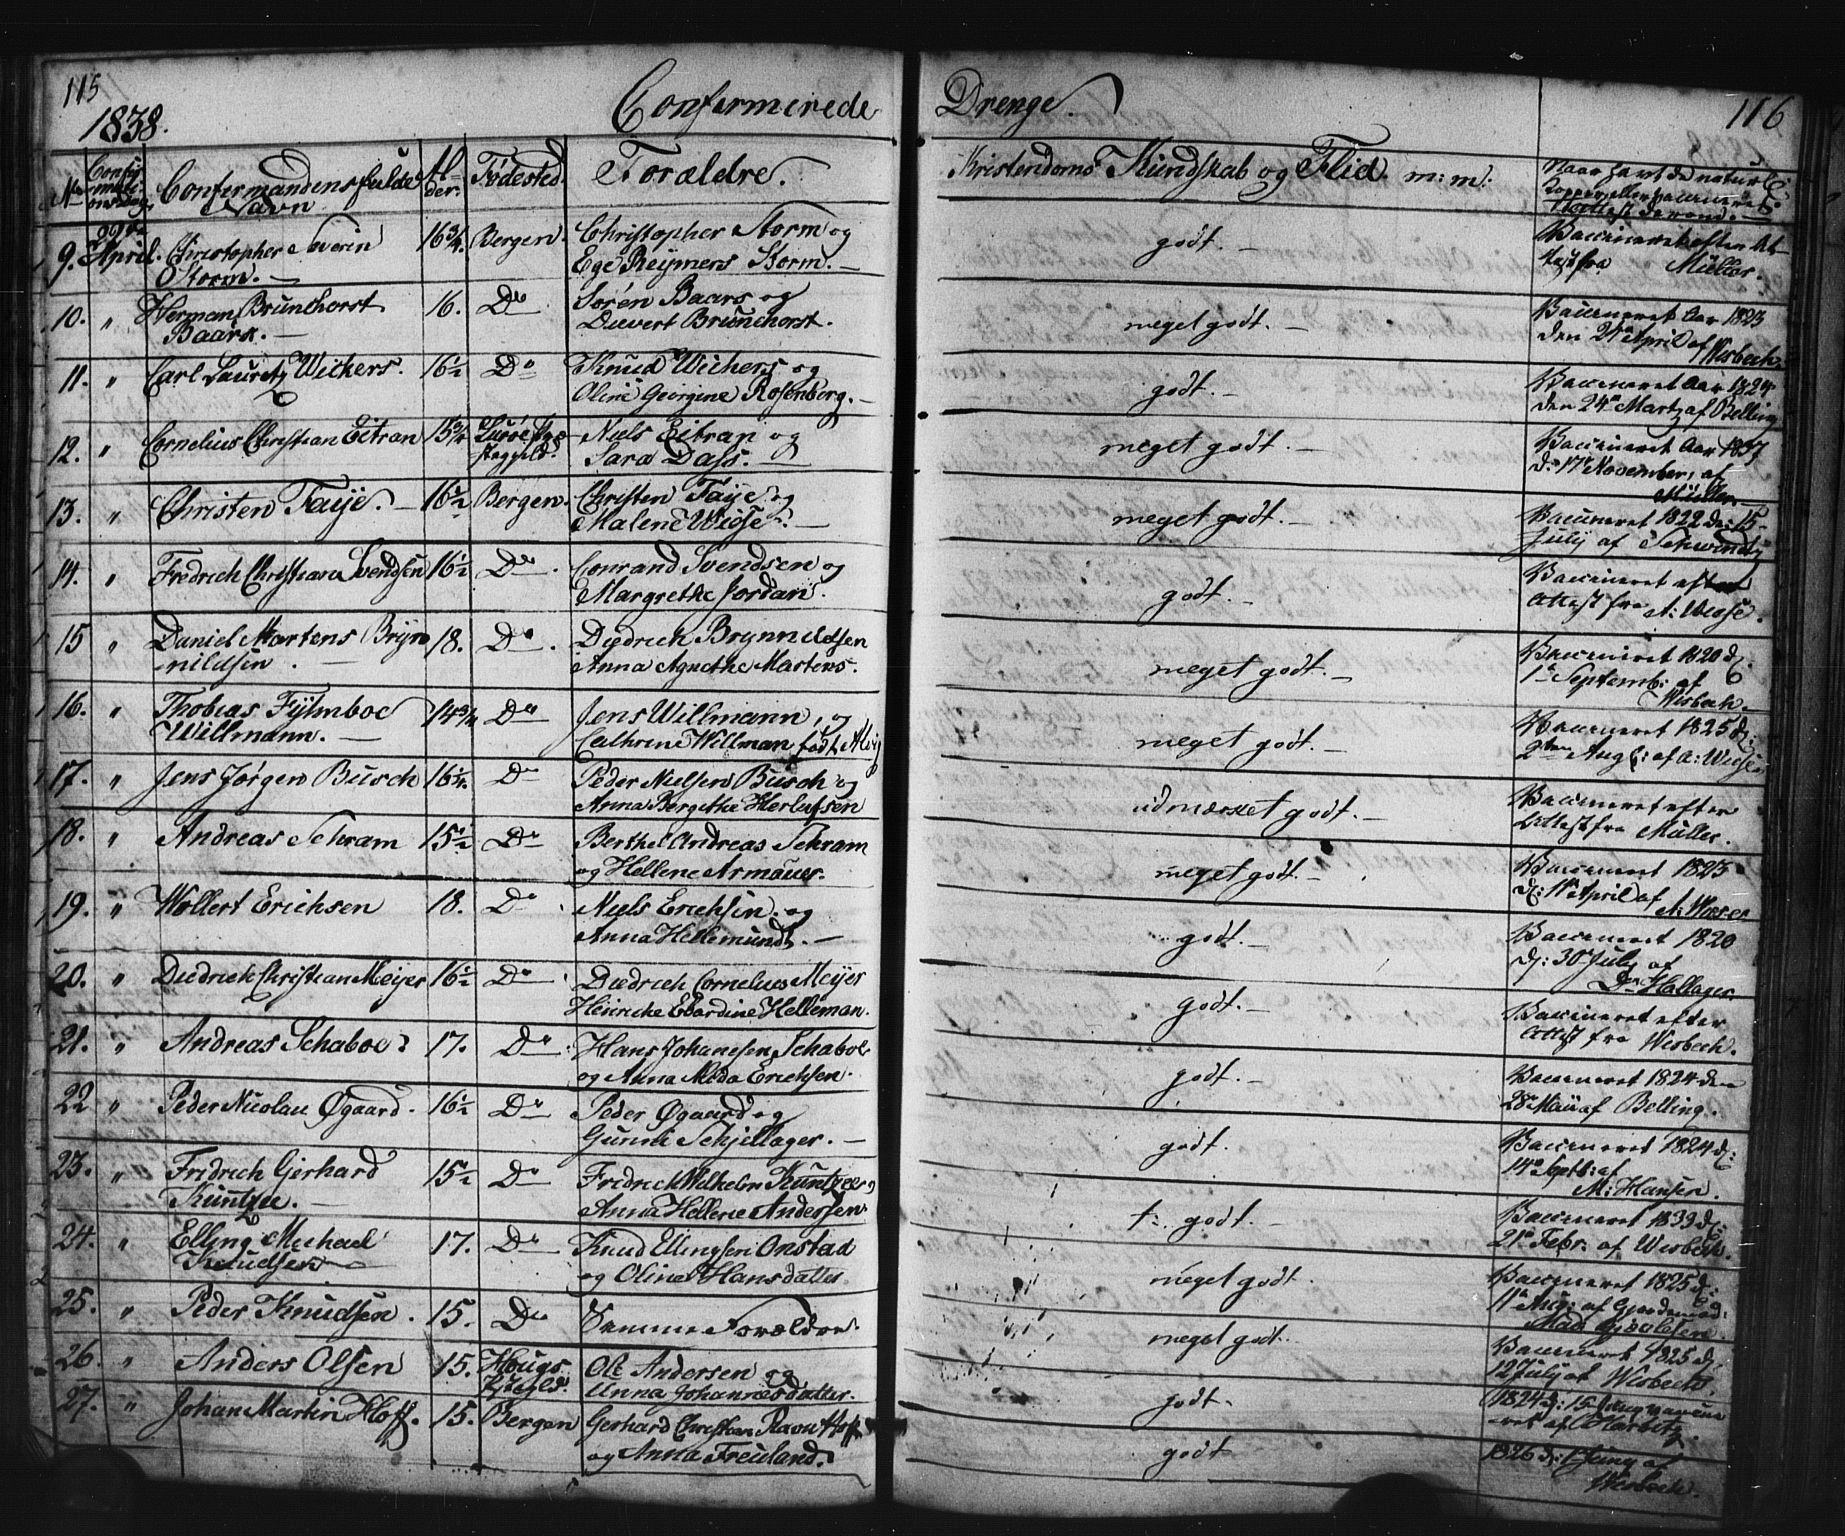 115
1838.
Confirmerede
Drenge.
116
No
Confirmandens fulde
Navn
Al-
der.
Fødested.
Forældre.
Kristendoms Kundskab og Flid m:m:
9. April. Christopher Severin 16 3/4. Bergen. Christopher Storm og
Storm. — Ege Reymers Storm. —
godt. —
Müller.
10. " Herman Brunchorst 16. Do Søren Baars og
Baars. — Dievert Brunchorst.
meget godt. —
Vaccineret Aar 1823
den 21 April af Wesbech.
11. " Carl Lauretz Wichers. 16 1/2 Do Knud Wichers og
Oline Georgine Rosenborg. —
godt. —
Vaccineret Aar 1824
den 24de Martz af Belling
12. " Cornelius Christian Eitran 15 3/4 Niels Eitran og
Sara Dass. —
meget godt. —
Vaccineret Aar 1837
d: 17 November, af
Müller.
13. " Christen Faye. — 16 1/2 Bergen. Christen Faye og
Malene Wiese. —
meget godt. —
Vaccineret 1822 d: 15
July af Schwindt
14. " Fredrich Christian Svendsen 16 1/2 Do. Conrand Svendsen og
Margrethe Jordan.
godt. —
Vaccineret efter
Attest fra A: Wiese.
15 " Daniel Martens Bryn 18. Do. Diedrich Brynnildsen
nildsen. — Anna Agnethe Martens.
meget godt. —
Vaccineret 1820 d:
1te Septemb: af
Wesbech.
16. " Thobias Fylmboe 14 3/4 Do Jens Willmann, og
Willmann. — Cathrine Willman født Alvig
meget godt. —
Vaccineret 1825 d:
2den Aug: af A: Wiese
17. " Jens Jørgen Busch 16 1/4. Do Peder Nielsen Busch og
Anna Bergethe Herlufsen
udmærket godt. —
Vaccineret efter
Attest fra Müller.
18. " Andreas Schram 15 1/2 Do Berthel Andreas Schram
og Hellene Armauer.
meget godt. —
Vaccineret 1823
d: 11 April af
A: Wiese
19. " Wollert Erichsen 18. Do Niels Erichsen og
Anna Hellemundt. —
godt. —
Vaccineret 1820
d: 30 July af
Hallager.
20. " Diedrich Christian Meijer 16 1/2 Do Diedrich Cornelius Meijer
Heinricke Ebardine Helleman.
godt. —
Vaccineret efter
Attest fra Wesbech.
21. " Andreas Schaboe 17. Do. Hans Johannesen Schaboe
og Anna Meda Erichsen.
godt. —
Vaccineret 1824 den
28 Mai af Belling.
22 " Peder Nicolai Øgaard. 16 1/2 Do Peder Øgaard og
Schjellager. —
godt.
Vaccineret 1824 d:
14 Septb: af
M: Hansen.
23. " Fridrich Gerhard 15 1/2 Do Fredrich Wilhelm Küntzel og
Küntzel. — Anna Hellene Andersen
godt. —
21 Febr: af Wesbech
24. " Elling Michael 17. Do Knud Ellingsen Onstad
Knudsen og Oline Hansdatter
meget godt.
Vaccineret 1825 d:
11 Aug: af
25. " Peder Knudsen. 15. Do Samme Forældre.
meget godt.
Vaccineret 1825 d.
12 July af Wesbech.
26. " Anders Olsen 15. Ole Andersen og
Anna Johannesdatter.
godt.
27. " Johan Martin Hoff. 15. Bergen Gerhard Christian Ravn Hoff
og Anna Freuland.
godt
1826 d: 1 Juny af
Wesbech.